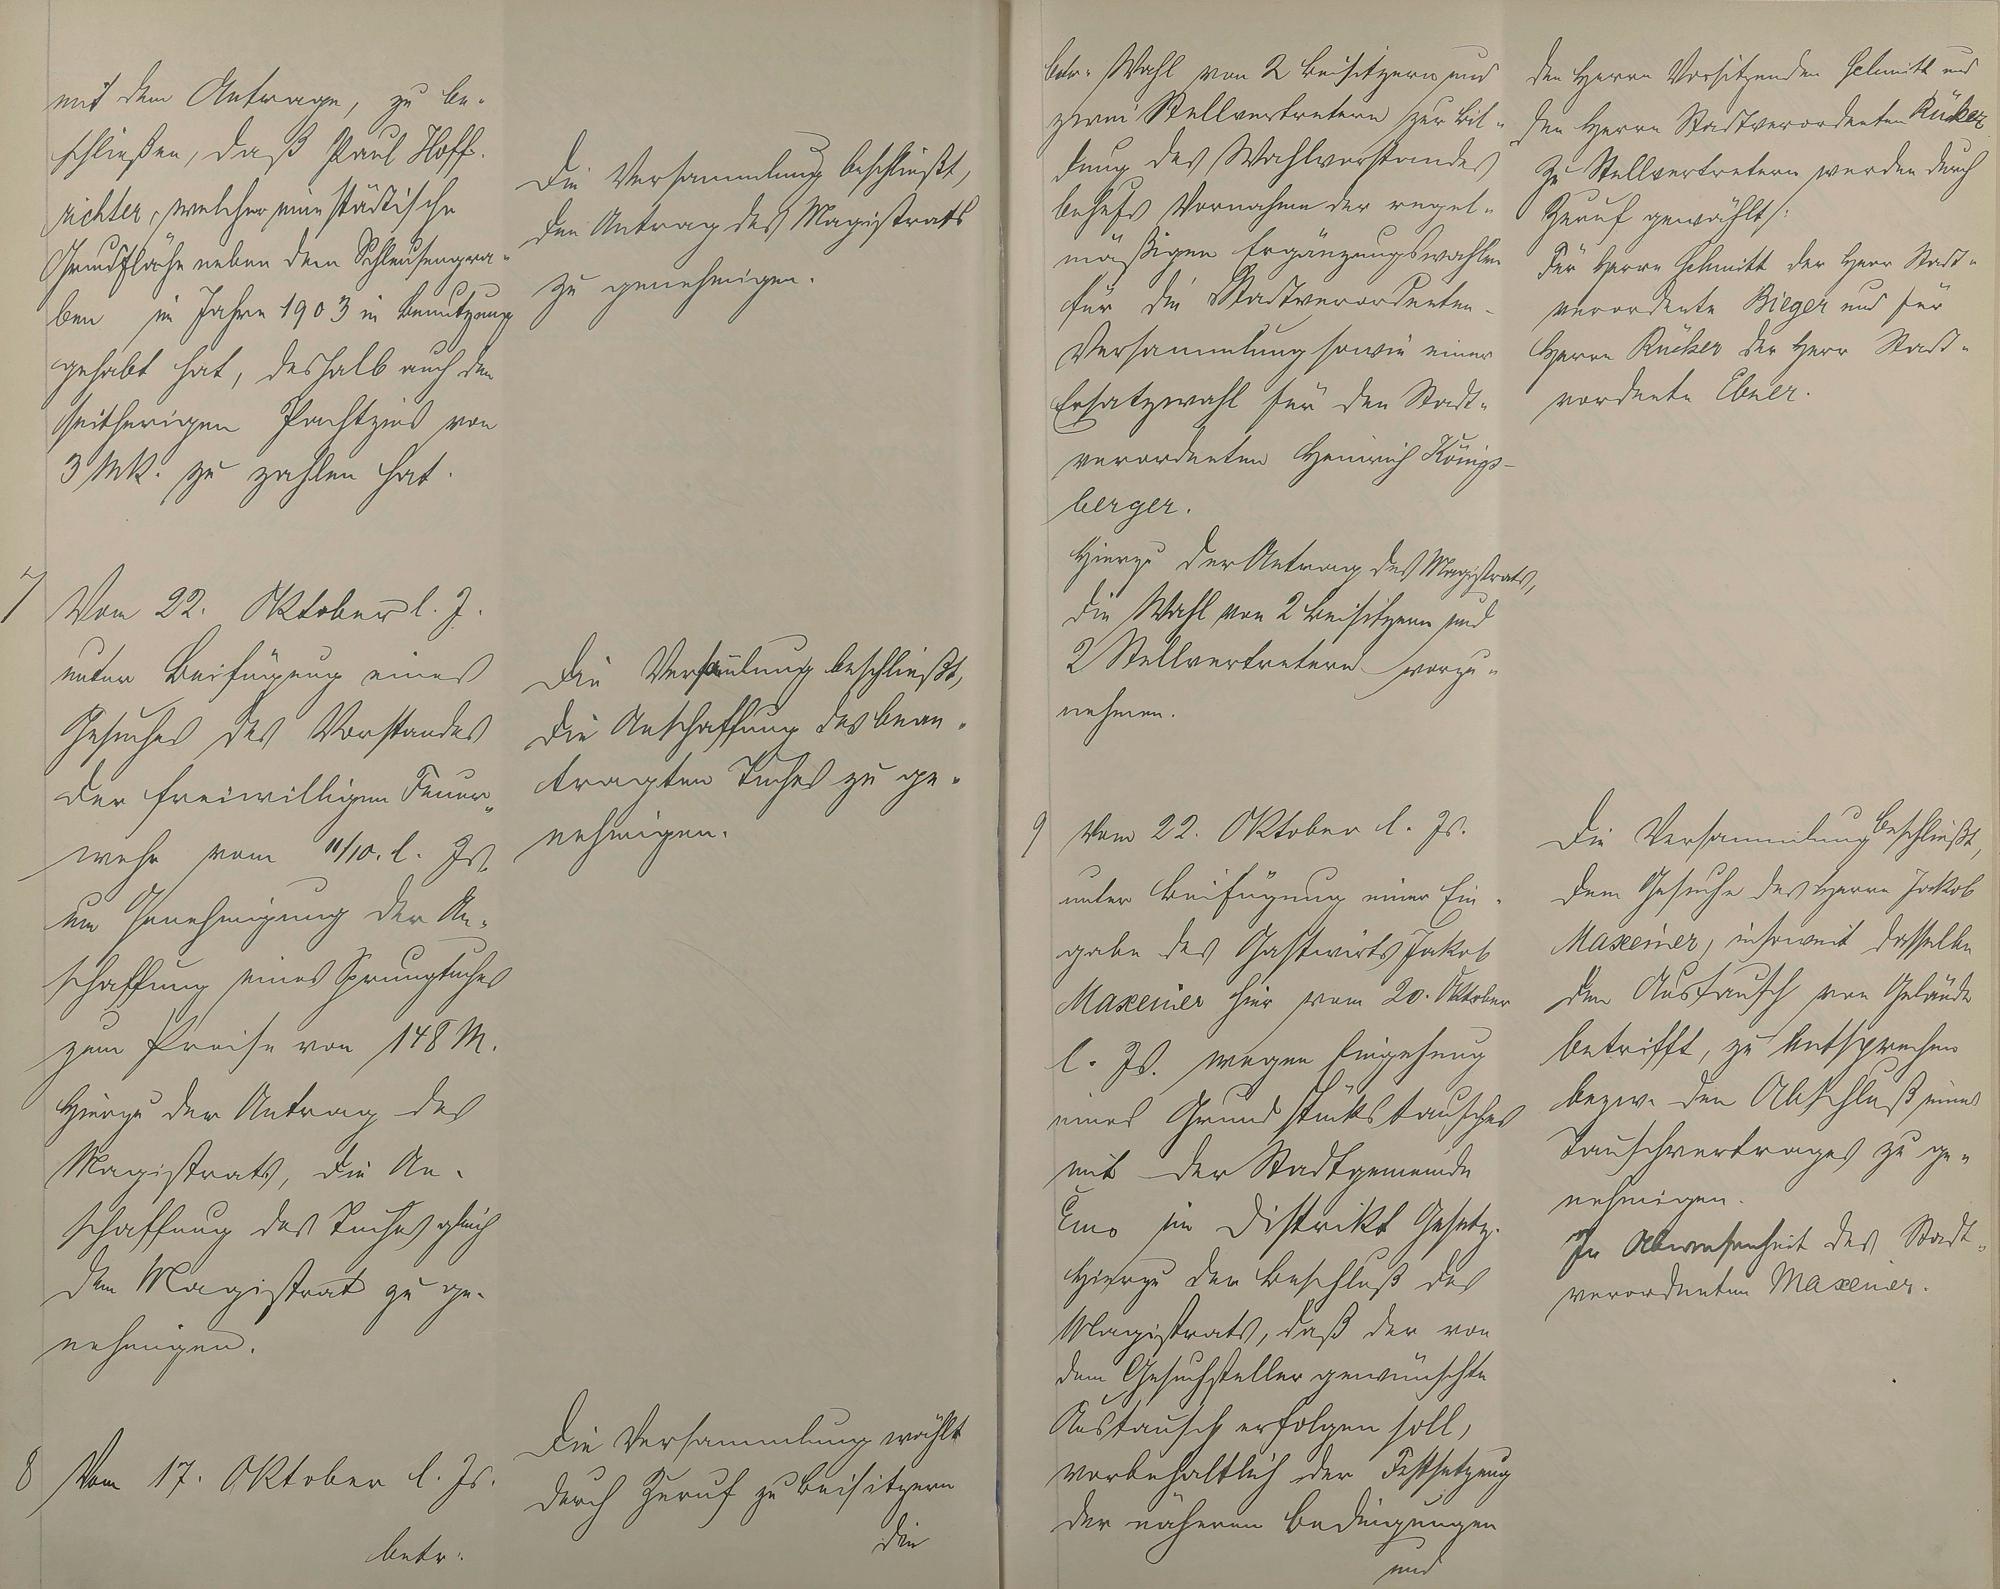 mit dem Antrage, zu be-
schließen, daß Paul Hoff-
richter, welcher eine städtische
Grundfläche neben dem Schleusengra-
ben im Jahre 1903 in Benutzung
gehabt hat, deshalb auch den
seitherigen Pachtzins von
3 Mk. zu zahlen hat.
Die Versammlung beschließt,
den Antrag des Magistrats
zu genehmigen.
7
Vom 22. Oktober l. J.
unter Beifügung eines
Gesuches des Vorstandes
der freiwilligen Feuer-
wehr vom 11/10. l. Js.
um Genehmigung der An-
schaffung eines Sprungtuches
zum Preise von 148 M.
Hierzu der Antrag des
Magistrats, die An-
schaffung des Tuches gleich
dem Magistrat zu ge-
nehmigen.
Die Versamlung beschließt,
die Anschaffung des bean-
tragten Tuches zu ge-
nehmigen.
8 Vom 17. Oktober l. Js.
betr.
Die Versammlung wählt
durch Zuruf zu Beisitzern
die
betr. Wahl von 2 Beisitzern und
zwei Stellvertretern zur Bil-
dung des Wahlvorstandes
behufs Vornahme der regel-
mäßigen Ergänzungswahlen
für die Stadtverordneten-
Versammlung sowie einer
Ersatzwahl für den Stadt-
verordneten Heinrich Königs-
berger.
Hierzu der Antrag des Magistrats,
die Wahl von 2 Beisitzern und
2 Stellvertretern vorzu-
nehmen.
den Herrn Vorsitzenden Schmitt und
den Herrn Stadtverordneten Rücker
Zu Stellvertretern werden durch
Zuruf gewählt:
Für Herrn Schmitt der Herr Stadt-
verordnete Bieger und für
Herrn Rücker der Herr Stadt-
vordnete Ebner.
9 Vom 22. Oktober l. Js.
unter Beifügung einer Ein-
gabe des Gastwirts Jakob
Maxeiner hier vom 20. Oktober
l. Js. wegen Eingehung
eines Grundstückstausches
mit der Stadtgemeinde
Ems im Distrikt Gesetz.
Hierzu der Beschluß des
Magistrats, daß der von
dem Gesuchsteller gewünschte
Austausch erfolgen soll,
vorbehaltlich der Festsetzung
der näheren Bedingungen
und
Die Versammlung beschließt,
dem Gesuche des Herrn Jakob
Maxeiner, insoweit dasselbe
den Austausch von Gelände
betrifft, zu entsprechen
bezw. den Abschluß eines
Tauschvertrages zu ge-
nehmigen.
In Abwesenheit des Stadt-
verordneten Maxeiner.